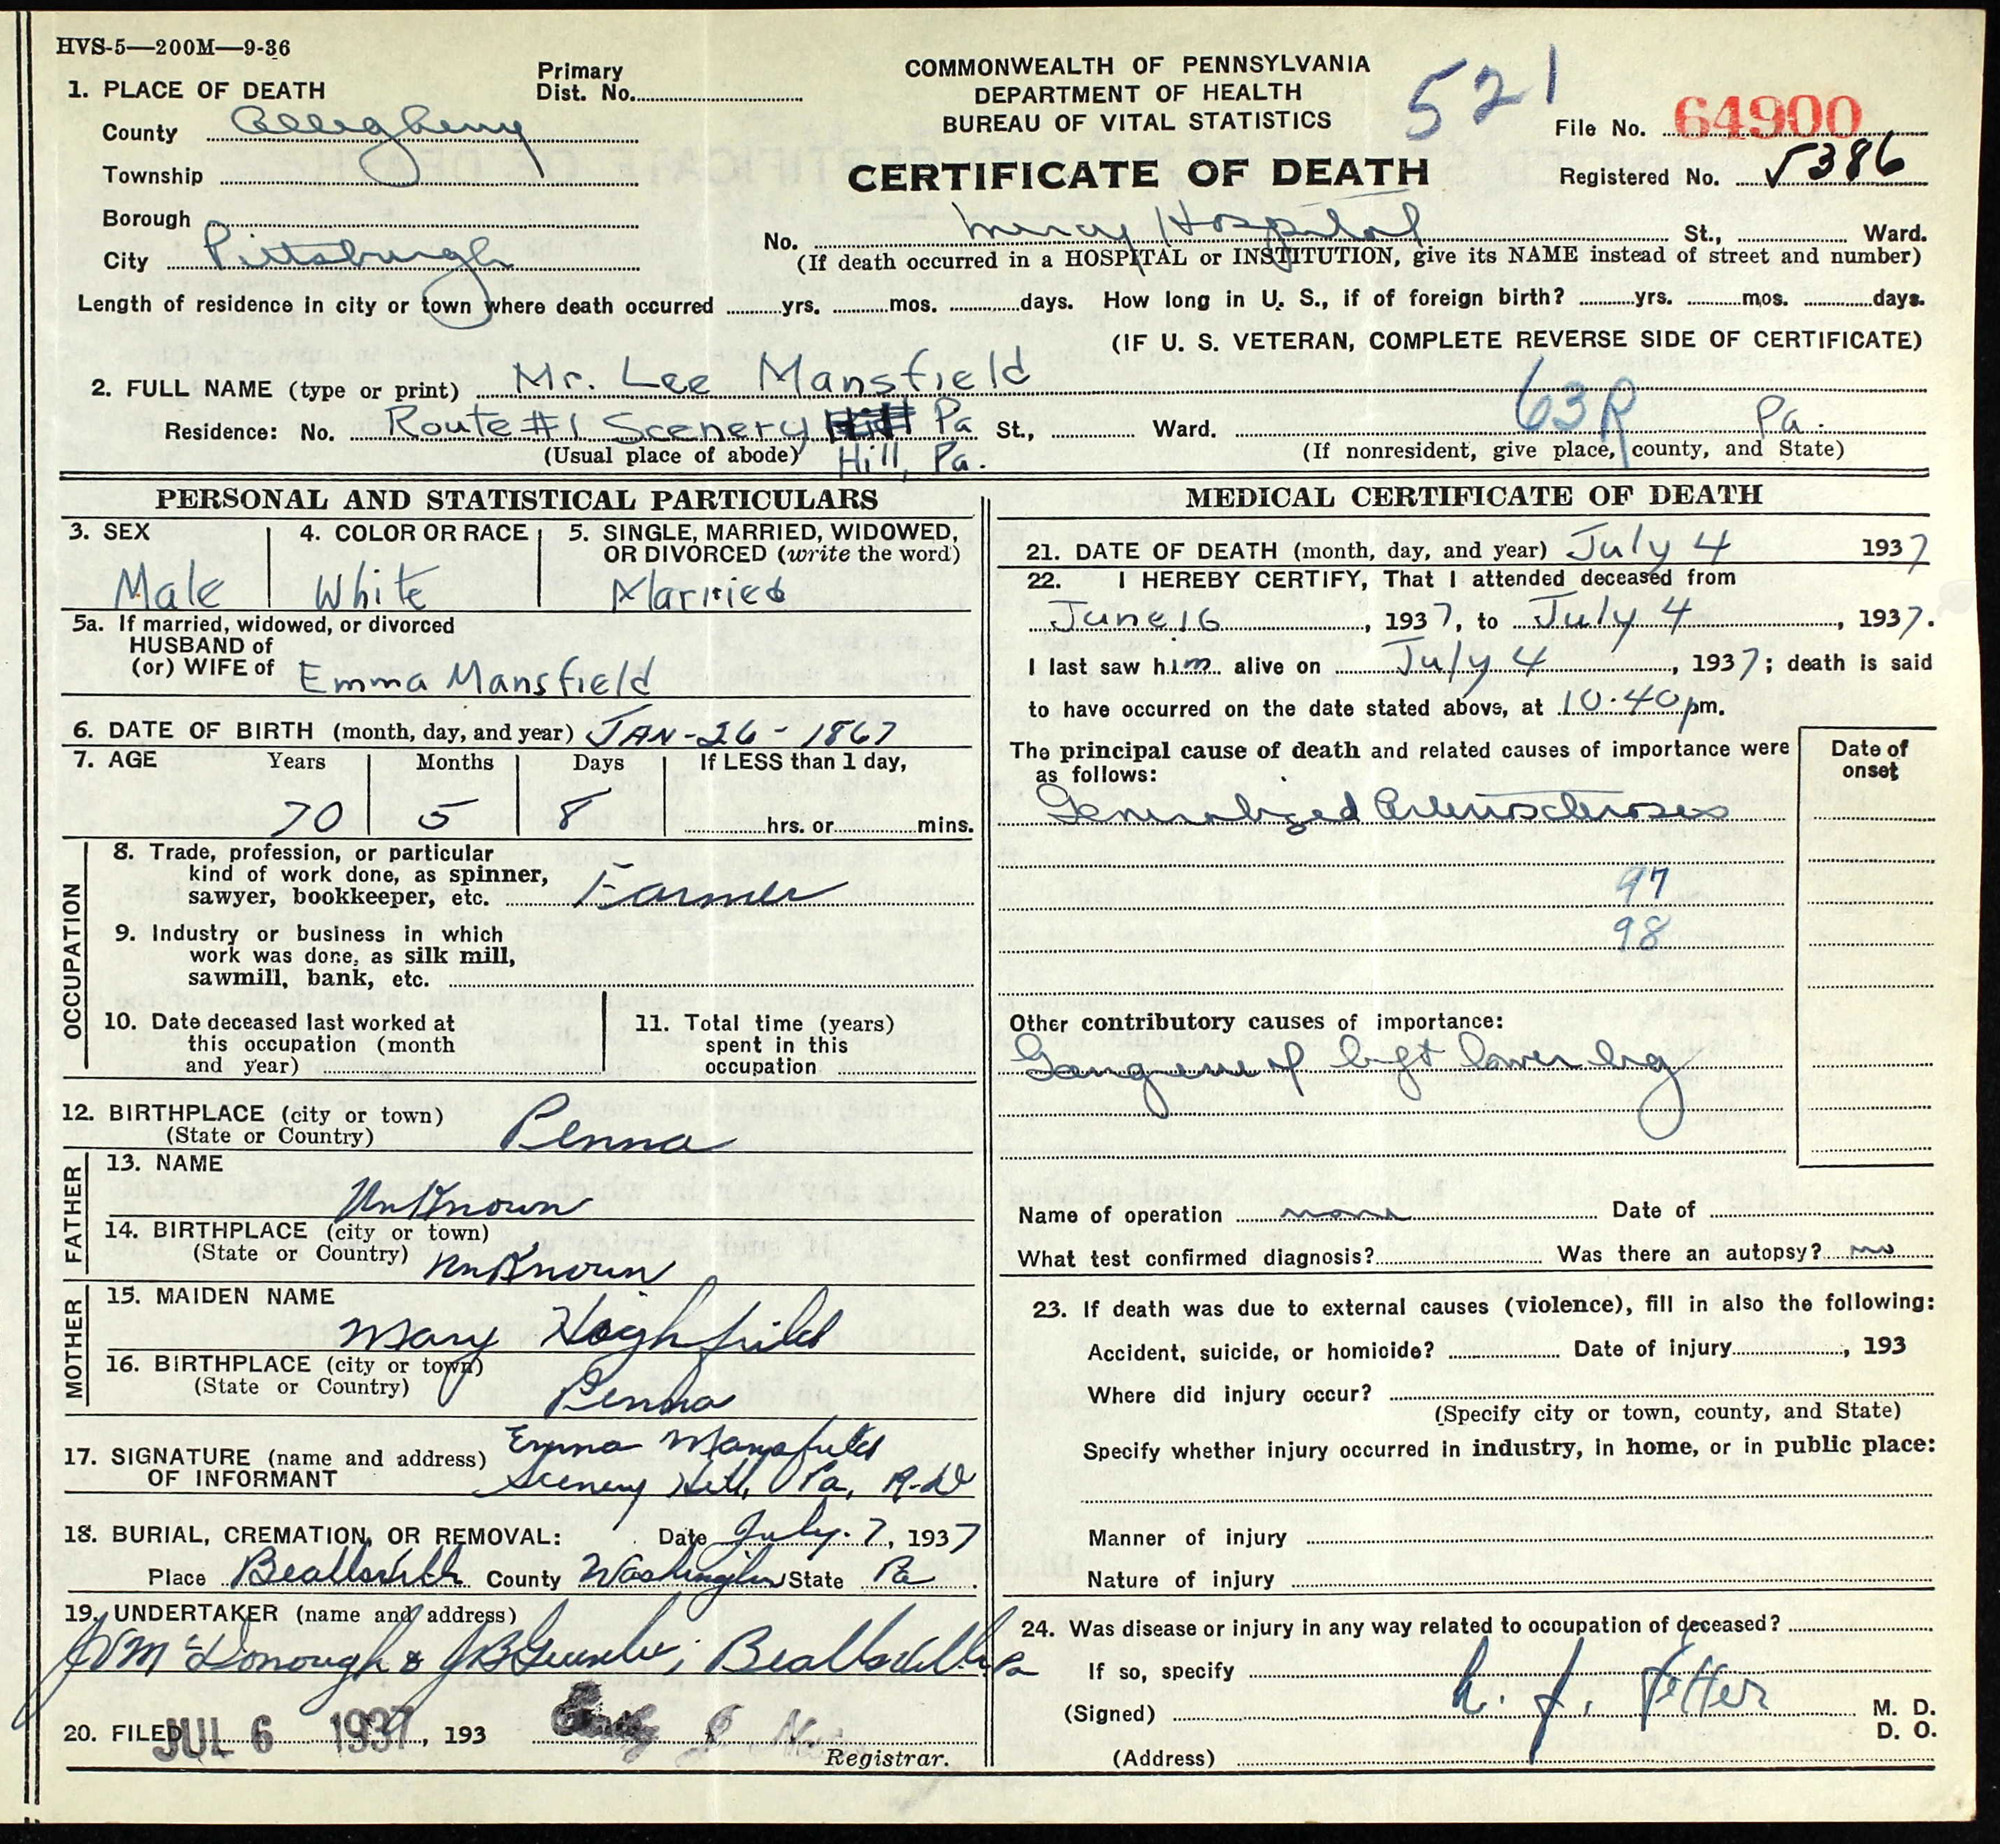 HVS-5—200M—9-36
COMMONWEALTH OF PENNSYLVANIA
DEPARTMENT OF HEALTH
BUREAU OF VITAL STATISTICS
CERTIFICATE OF DEATH
521
File No. 64900
Registered No. 5386
1. PLACE OF DEATH
Primary Dist. No.
County Allegheny
Township
Borough
City Pittsburgh
No. Mercy Hospital St., Ward.
(If death occurred in a HOSPITAL or INSTITUTION, give its NAME instead of street and number)
Length of residence in city or town where death occurred yrs. mos. days. How long in U. S., if of foreign birth? yrs. mos. days.
(IF U. S. VETERAN, COMPLETE REVERSE SIDE OF CERTIFICATE)
2. FULL NAME (type or print) Mr. Lee Mansfield
Residence: No. Route #1 Scenery Hill Pa St., Ward. 63R Pa.
(Usual place of abode) Hill, Pa. (If nonresident, give place, county, and State)
PERSONAL AND STATISTICAL PARTICULARS
3. SEX Male
4. COLOR OR RACE White
5. SINGLE, MARRIED, WIDOWED, OR DIVORCED (write the word) Married
5a. If married, widowed, or divorced
HUSBAND of
(or) WIFE of Emma Mansfield
6. DATE OF BIRTH (month, day, and year) JAN-26-1867
7. AGE Years Months Days If LESS than 1 day,
70 5 8 hrs. or mins.
OCCUPATION
8. Trade, profession, or particular
kind of work done, as spinner,
sawyer, bookkeeper, etc. Farmer
9. Industry or business in which
work was done, as silk mill,
sawmill, bank, etc.
10. Date deceased last worked at
this occupation (month
and year)
11. Total time (years)
spent in this
occupation
12. BIRTHPLACE (city or town)
(State or Country) Penna
FATHER
13. NAME
UnKnown
14. BIRTHPLACE (city or town)
(State or Country) UnKnown
MOTHER
15. MAIDEN NAME
Mary Highfield
16. BIRTHPLACE (city or town)
(State or Country) Penna
17. SIGNATURE (name and address) Emma Mansfield
OF INFORMANT Scenery Hill, Pa,
18. BURIAL, CREMATION, OR REMOVAL: Date July-7, 1937
Place Beallsville County Washington State Pa.
19. UNDERTAKER (name and address)
McDonough & Beallsville Pa
20. FILED JUL 6 1937, 193
Registrar.
MEDICAL CERTIFICATE OF DEATH
21. DATE OF DEATH (month, day, and year) July 4 1937
22. I HEREBY CERTIFY, That I attended deceased from
June 16, 1937, to July 4, 1937.
I last saw him alive on July 4, 1937; death is said
to have occurred on the date stated above, at 10.40 pm.
The principal cause of death and related causes of importance were
as follows:
Date of onset
Generalized Arteriosclerosis
97
98
Other contributory causes of importance:
Gangrene of left lower leg
Name of operation none Date of
What test confirmed diagnosis? Was there an autopsy? no
23. If death was due to external causes (violence), fill in also the following:
Accident, suicide, or homicide? Date of injury, 193
Where did injury occur?
(Specify city or town, county, and State)
Specify whether injury occurred in industry, in home, or in public place:
Manner of injury
Nature of injury
24. Was disease or injury in any way related to occupation of deceased?
If so, specify
(Signed) M. D.
D. O.
(Address)